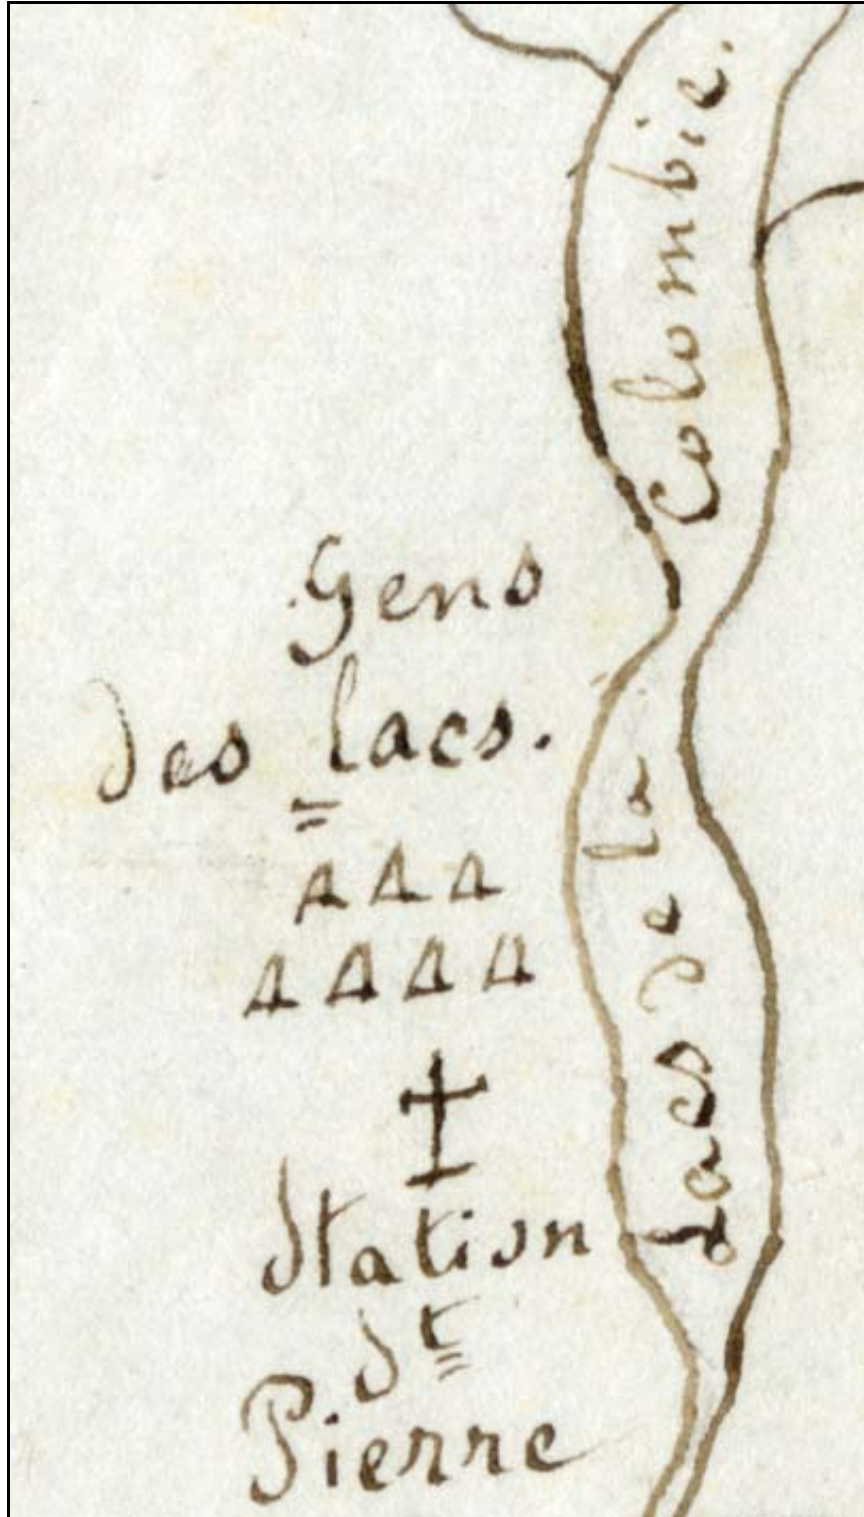 Gens
des lacs.
Station
St
Pierre
Lacs de la Colombie.